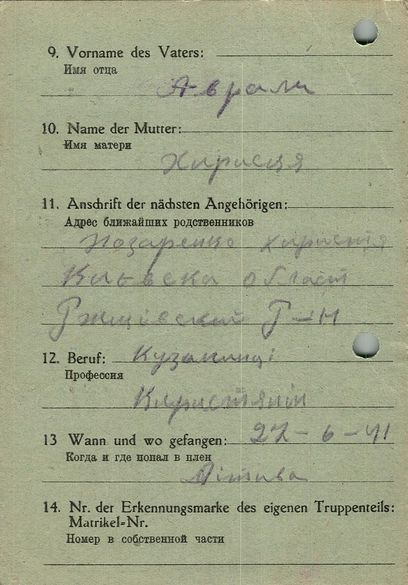 9. Vorname des Vaters:
Имя отца
Аврам
10. Name der Mutter:
Имя матери
Христя
11. Anschrift der nächsten Angehörigen:
Адрес ближайших родственников
Назаренко Христя
Киевска област
Ржщовский Р-Н
12. Beruf: Кузаминці
Профессия
13 Wann und wo gefangen: 27-6-41
Когда и где попал в плен
Літива
14. Nr. der Erkennungsmarke des eigenen Truppenteils:
Matrikel-Nr.
Номер в собственной части